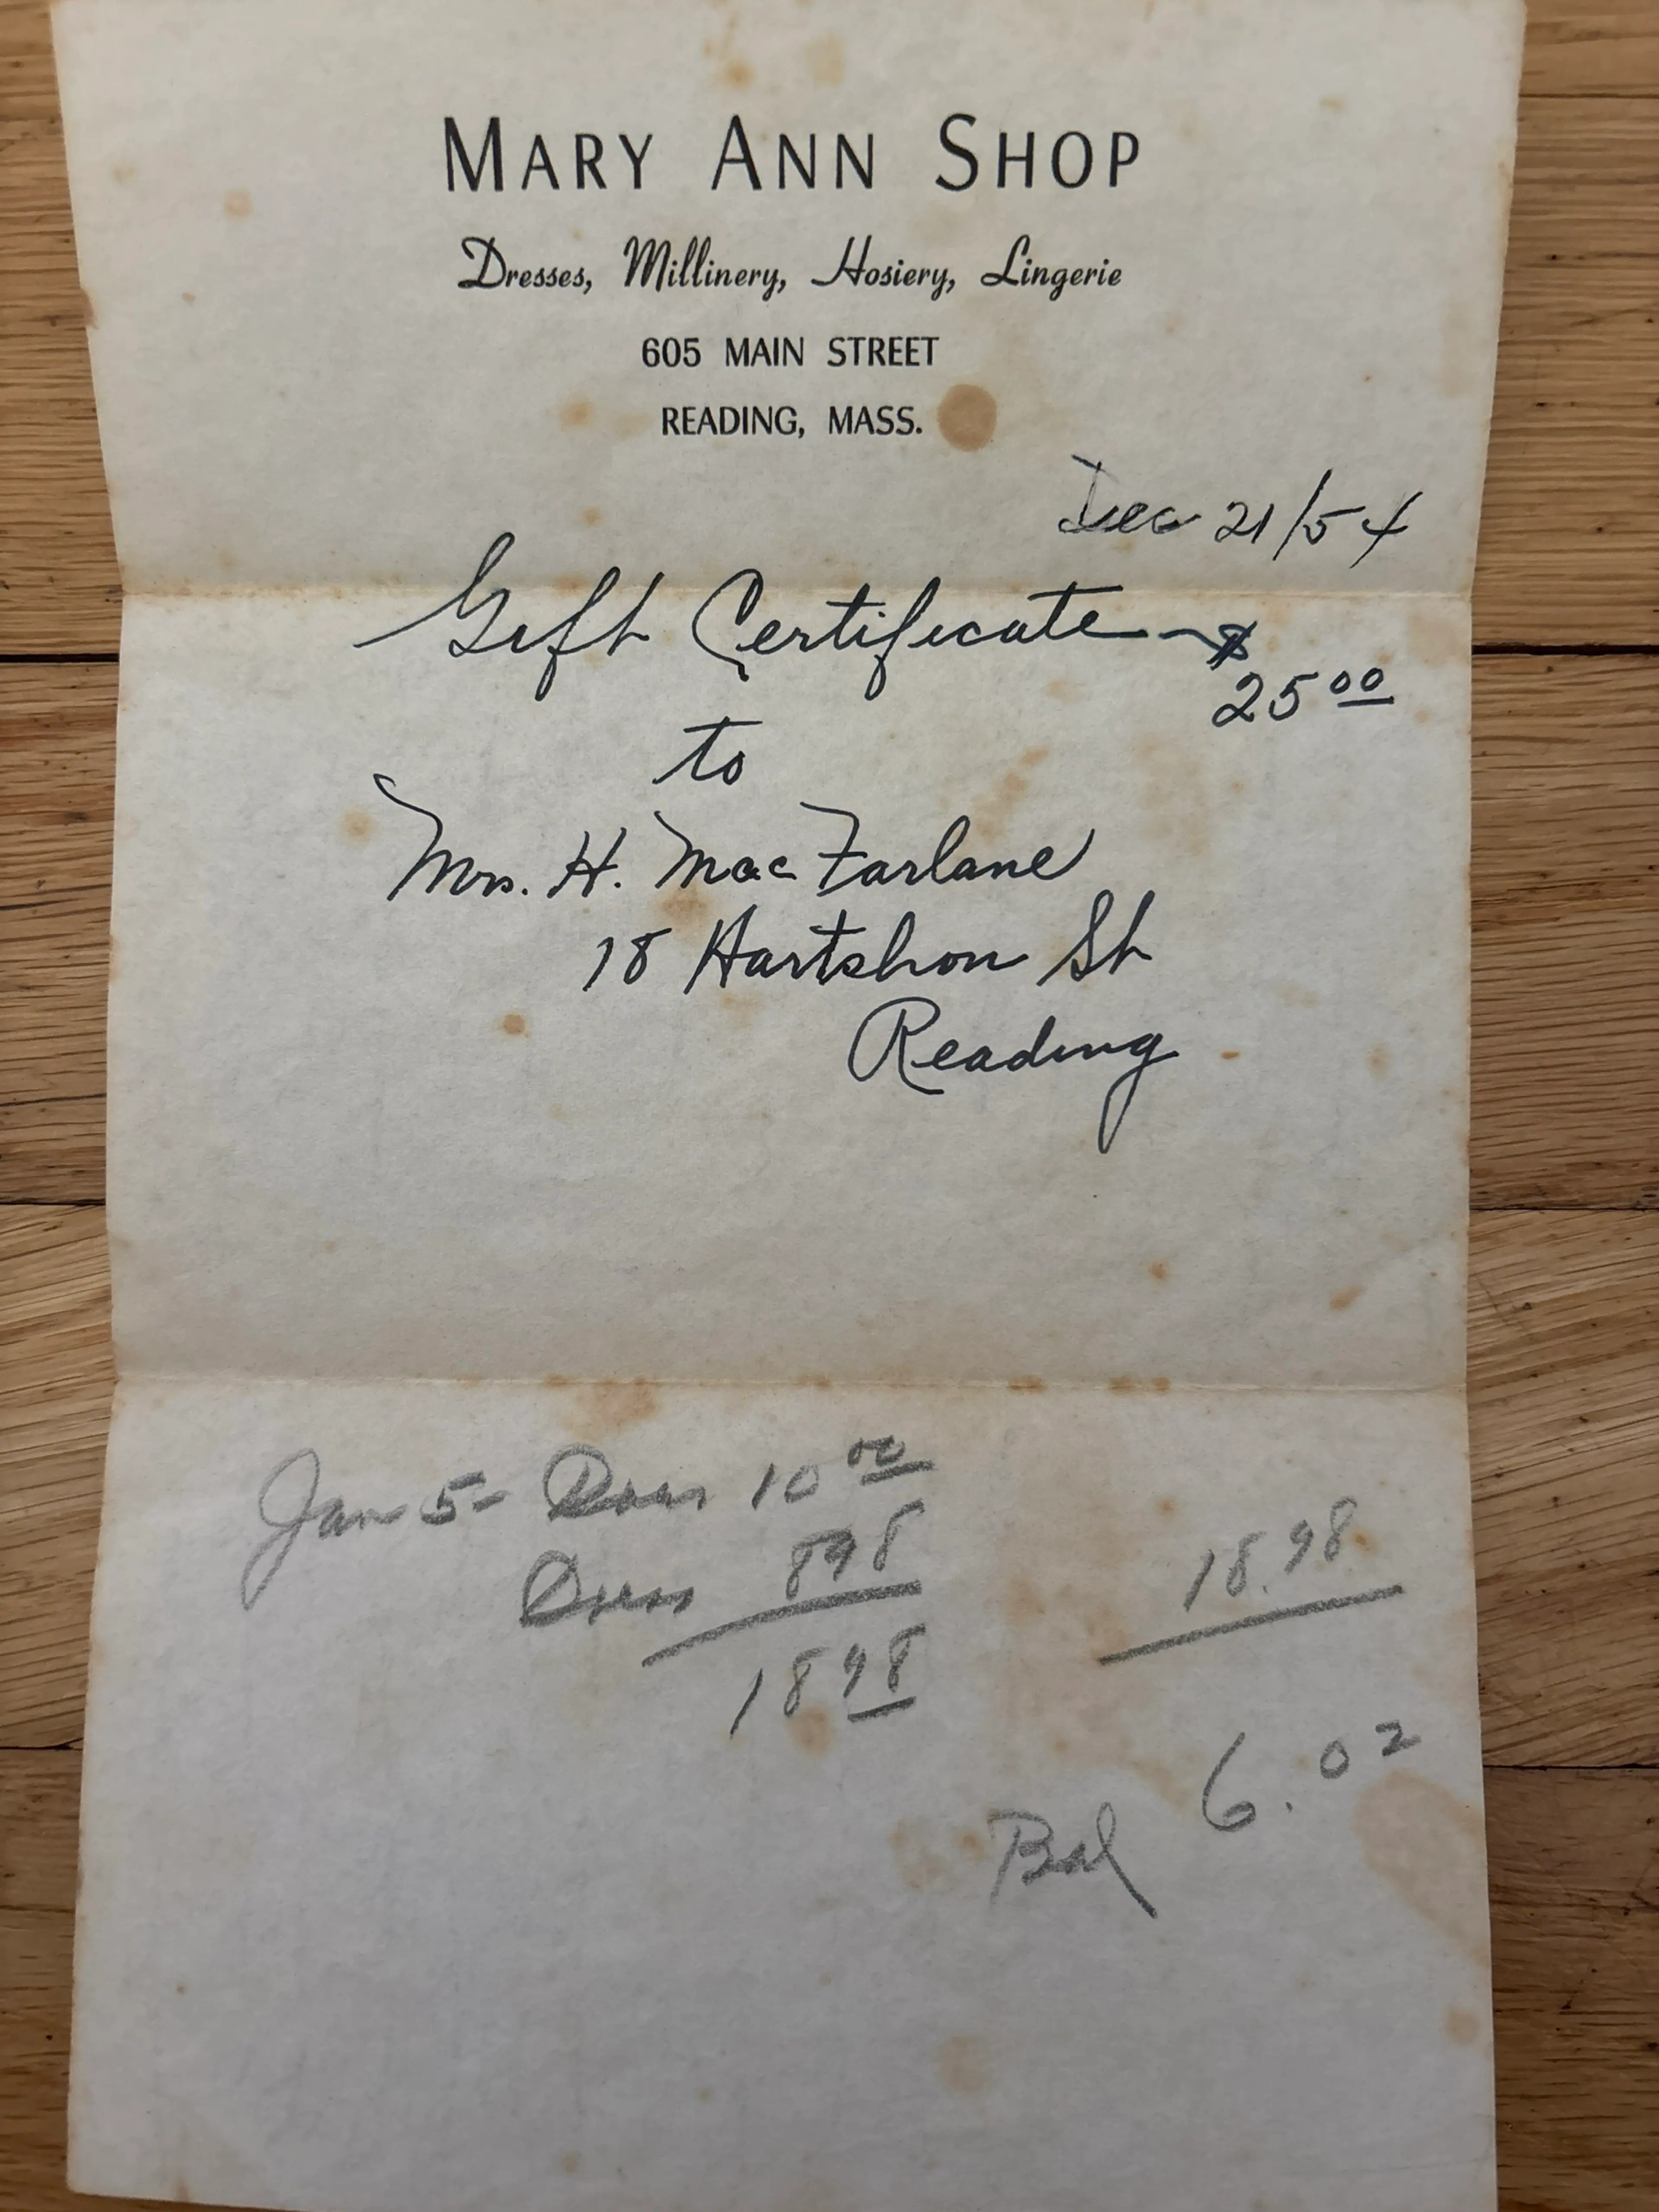 MARY ANN SHOP
Dresses, Millinery, Hosiery, Lingerie
605 MAIN STREET
READING, MASS.
Dec 21/54
Gift Certificate - $
25 00
to
Mrs. H. MacFarlane
18 Hartshon St
Reading
Jan 5 - Dress 10 00
Dress 8 98
18 98
18.98
6.02
Bal